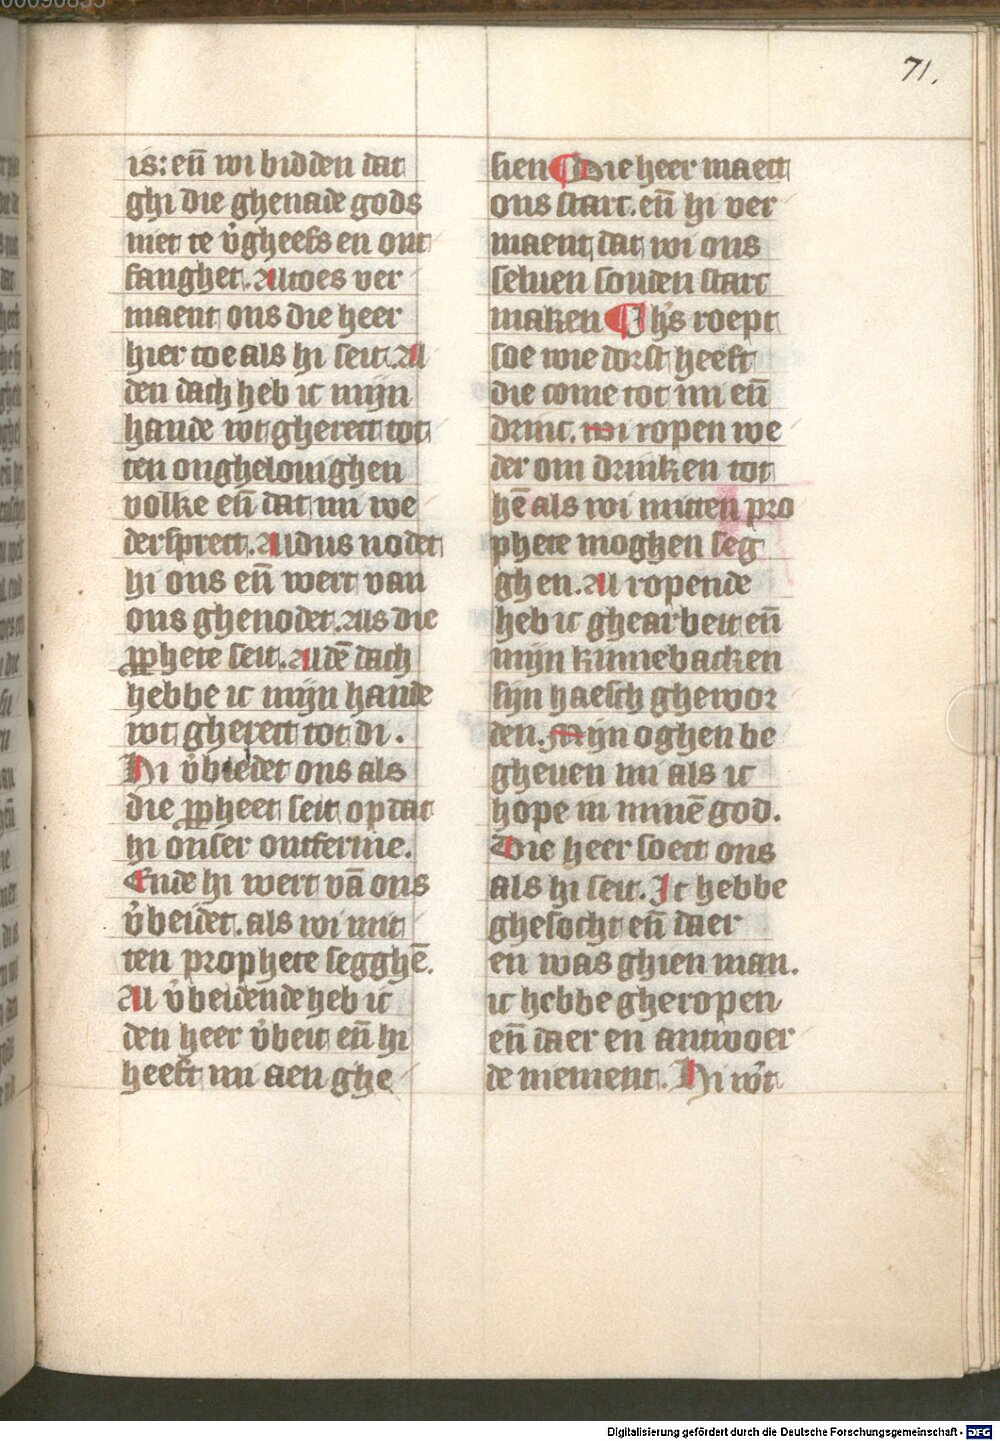 71.
is: en̄ wi bidden dat
ghi die ghenade gods
niet te v̉gheefs en ont
fanghet. Altoes ver
maent ons die heer
hier toe als hi seit. Al
den dach heb ic mijn
hande wt gherect tot
ten onghelouighen
volke en̄ dat mi we
dersprect. Aldus nodet
hi ons en̄ wert van
ons ghenodet. Als die
ꝓphete seit. Al dē dach
hebbe ic mijn hande
wt gherect tot di.
Hi v̉biedet ons als
die ꝓpheet seit op dat
hi onser ontferme.
Ende hi wert vā ons
v̉beidet. als wi mit
ten prophete segghē.
Al v̉beidende heb ic
den heer v̉beit en̄ hi
heeft mi aen ghe
sien ¶ Die heer maect
ons starc. en̄ hi ver
maent dat wi ons
seluen souden starc
maken ¶ Ihs roept
soe wie dorst heeft
die come tot mi en̄
drinc. wi ropen we
der om drinken tot
hē als wi mitten pro
phete moghen seg
ghen. Al ropende
heb ic ghearbeit en̄
mijn kinnebacken
sijn haesch ghewor
den. Mijn oghen be
gheuen mi als ic
hope in minē god.
Die heer soect ons
als hi seit. Ic hebbe
ghesocht en̄ daer
en was ghien man.
ic hebbe gheropen
en̄ daer en antwoer
de niement. Hi wͦt
Digitalisierung gefördert durch die Deutsche Forschungsgemeinschaft - DFG